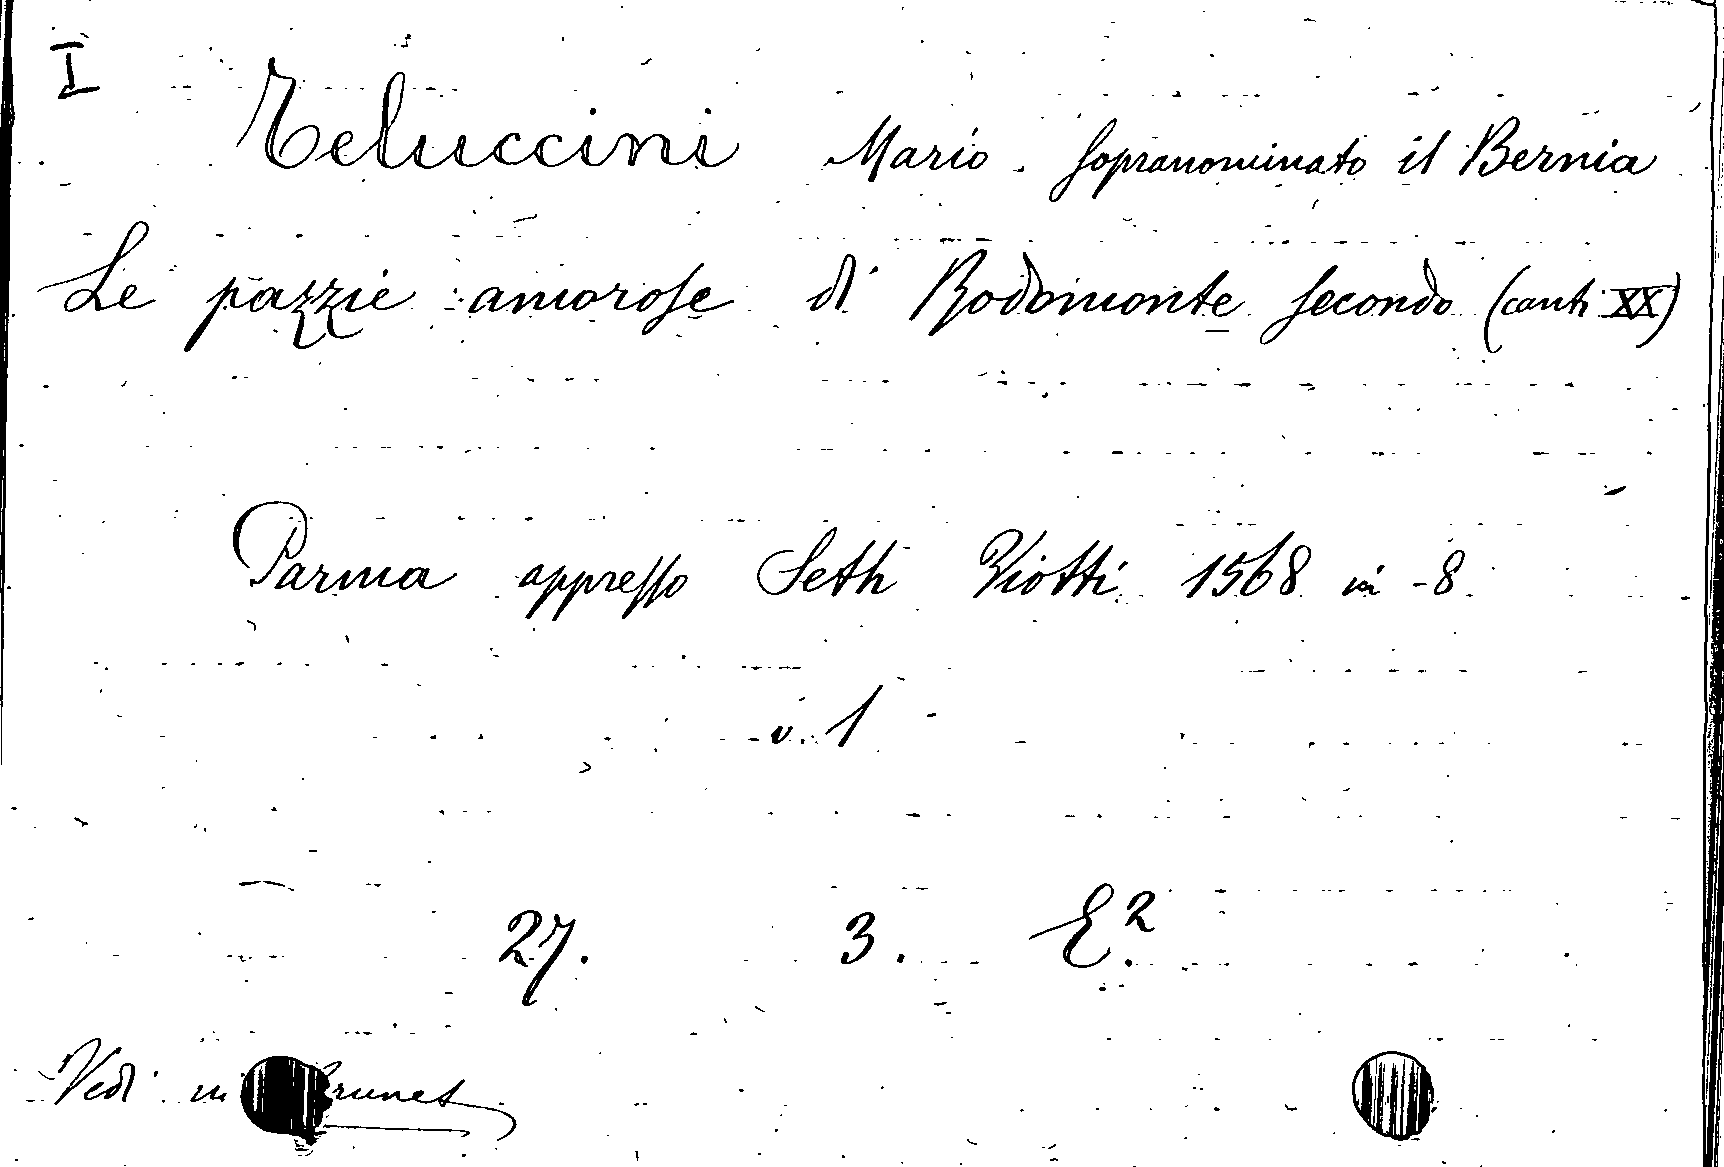 I
Teluccini Mario. sopranominato il Bernia
Le pazzie amorose di Rodomonte secondo (canti XX)
Parma appresso Seth Viotti 1568 in-8
v. 1
27. 3. E².
Vedi in Brunet